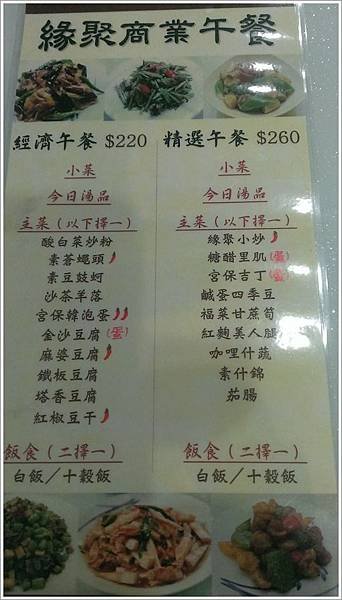 緣聚商業午餐
經濟午餐 $220
小菜
今日湯品
主菜(以下擇一)
酸白菜炒粉
素蒼蠅頭
素豆豉蚵
沙茶羊落
宮保韓泡蛋
金沙豆腐(蛋)
麻婆豆腐
鐵板豆腐
塔香豆腐
紅椒豆干
飯食(二擇一)
白飯/十穀飯
精選午餐 $260
小菜
今日湯品
主菜(以下擇一)
緣聚小炒
糖醋里肌(蛋)
宮保吉丁(蛋)
鹹蛋四季豆
福菜甘蔗筍
紅麴美人腿
咖哩什蔬
素什錦
茄腸
飯食(二擇一)
白飯/十穀飯